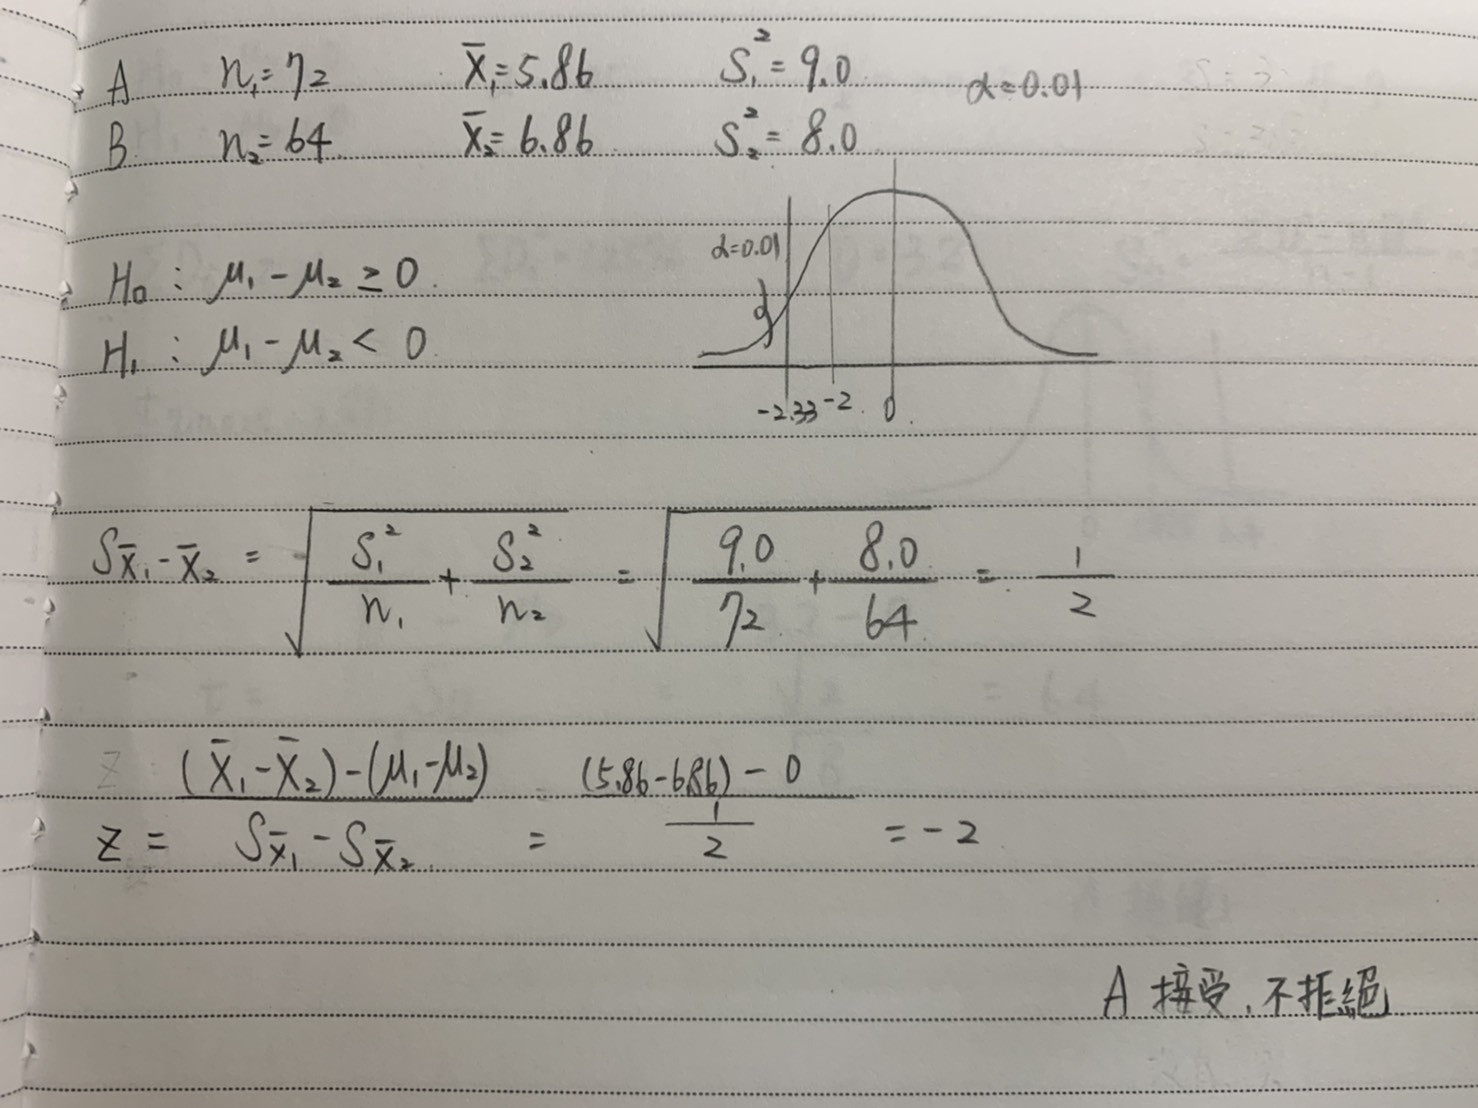 A n₁=72 X̄₁=5.86 S₁²=9.0 α=0.01
B n₂=64 X̄₂=6.86 S₂²=8.0
α=0.01
-2.33 -2 0
H₀ : μ₁-μ₂ ≥ 0
H₁ : μ₁-μ₂ < 0
S X̄₁-X̄₂ = √(S₁²/n₁ + S₂²/n₂) = √(9.0/72 + 8.0/64) = 1/2
Z = ((X̄₁-X̄₂)-(μ₁-μ₂))/(S X̄₁ - S X̄₂) = ((5.86-6.86)-0)/(1/2) = -2
A 接受,不拒絕